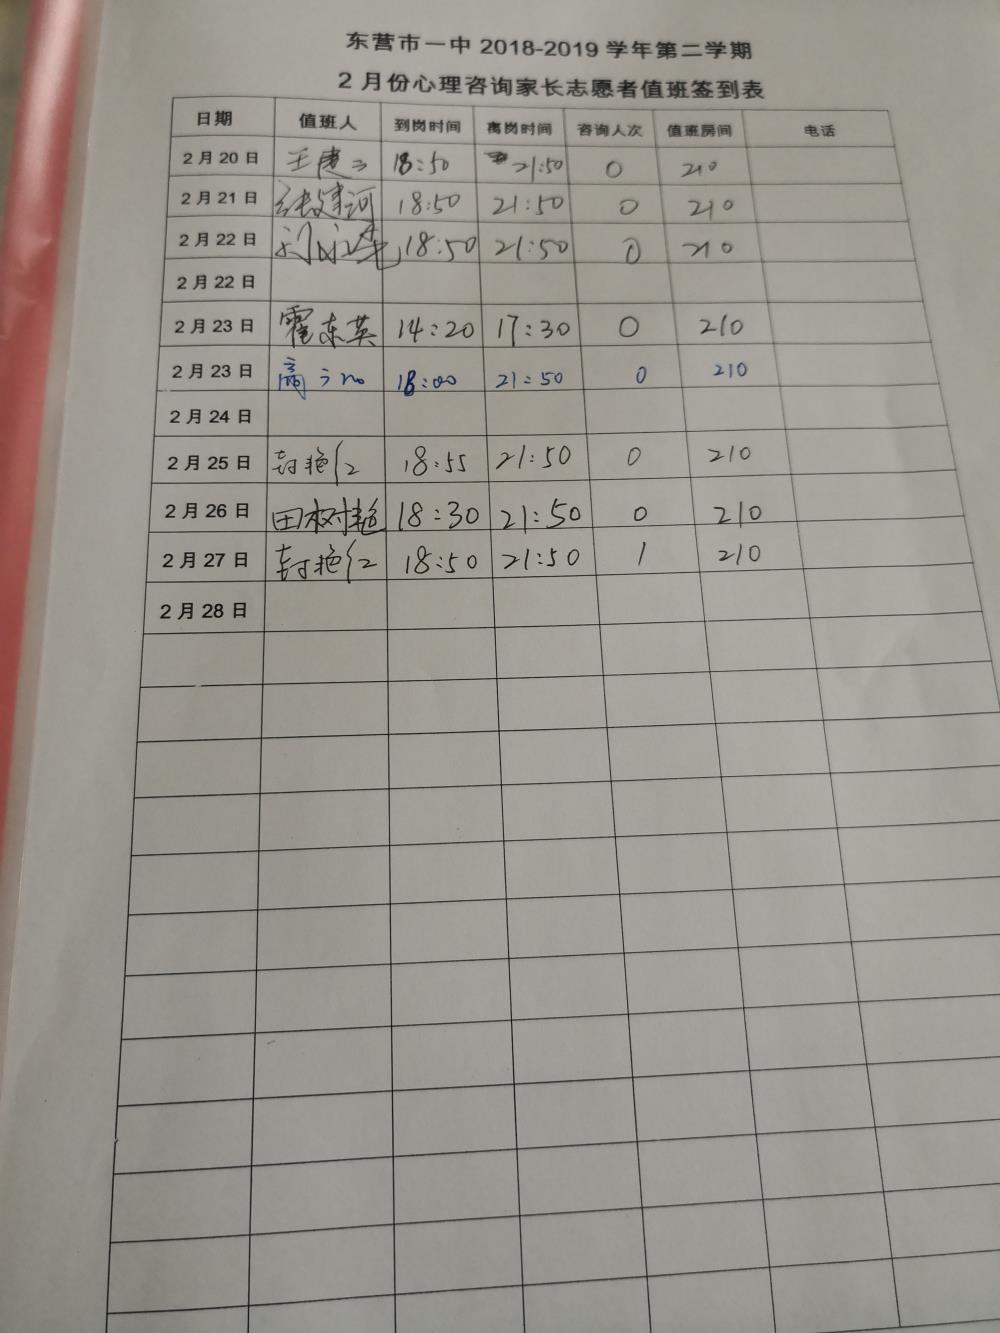 东营市一中 2018-2019 学年第二学期
2 月份心理咨询家长志愿者值班签到表
日期 值班人 到岗时间 离岗时间 咨询人次 值班房间 电话
2 月 20 日 18:50 21:50 0 210
2 月 21 日 张建河 18:50 21:50 0 210
2 月 22 日 18:50 21:50 0 210
2 月 22 日
2 月 23 日 霍东英 14:20 17:30 0 210
2 月 23 日 18:00 21:50 0 210
2 月 24 日
2 月 25 日 封艳红 18:55 21:50 0 210
2 月 26 日 田树艳 18:30 21:50 0 210
2 月 27 日 封艳红 18:50 21:50 1 210
2 月 28 日